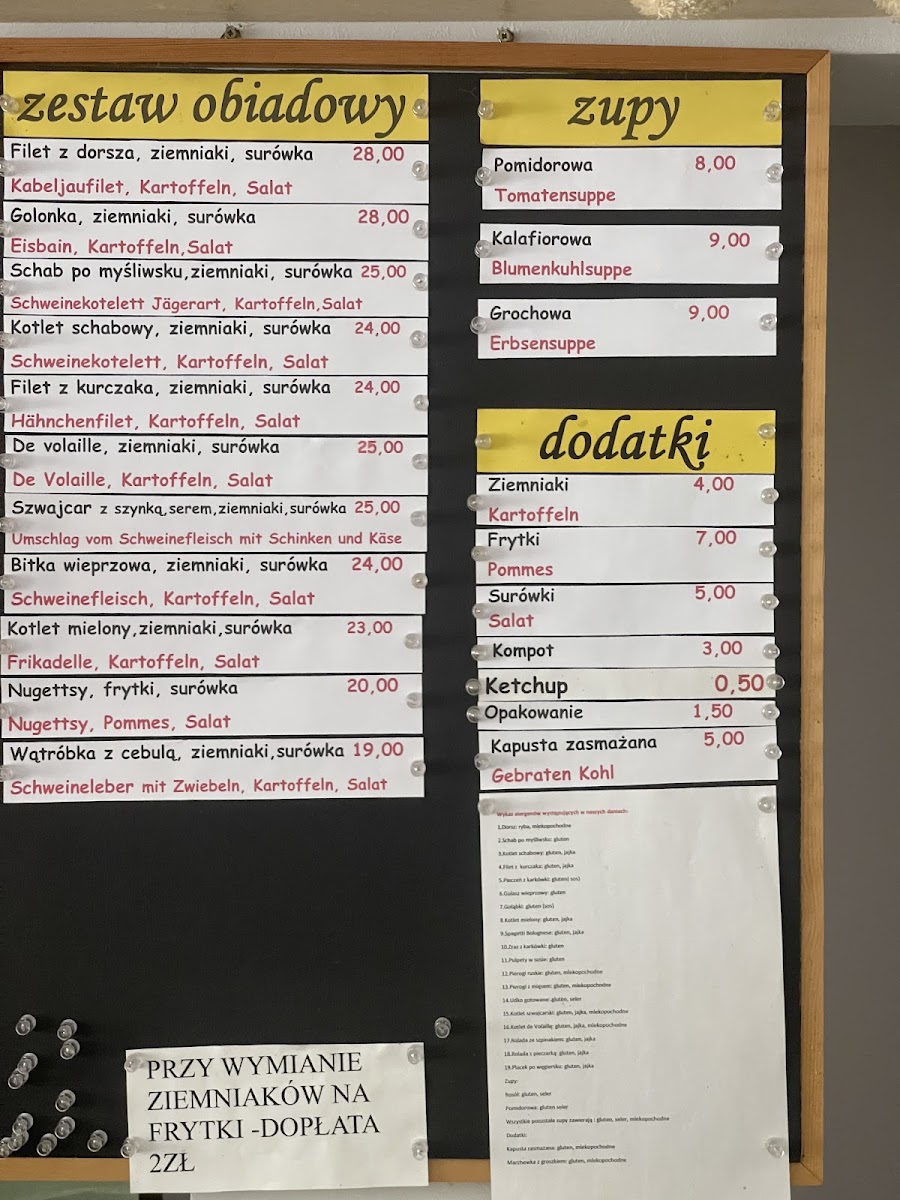 zestaw obiadowy
Filet z dorsza, ziemniaki, surówka 28,00
Kabeljaufilet, Kartoffeln, Salat
Golonka, ziemniaki, surówka 28,00
Eisbain, Kartoffeln,Salat
Schab po myśliwsku,ziemniaki, surówka 25,00
Schweinekotelett Jägerart, Kartoffeln,Salat
Kotlet schabowy, ziemniaki, surówka 24,00
Schweinekotelett, Kartoffeln, Salat
Filet z kurczaka, ziemniaki, surówka 24,00
Hähnchenfilet, Kartoffeln, Salat
De volaille, ziemniaki, surówka 25,00
De Volaille, Kartoffeln, Salat
Szwajcar z szynką,serem,ziemniaki,surówka 25,00
Umschlag vom Schweinefleisch mit Schinken und Käse
Bitka wieprzowa, ziemniaki, surówka 24,00
Schweinefleisch, Kartoffeln, Salat
Kotlet mielony,ziemniaki,surówka 23,00
Frikadelle, Kartoffeln, Salat
Nugettsy, frytki, surówka 20,00
Nugettsy, Pommes, Salat
Wątróbka z cebulą, ziemniaki,surówka 19,00
Schweineleber mit Zwiebeln, Kartoffeln, Salat
PRZY WYMIANIE
ZIEMNIAKÓW NA
FRYTKI -DOPŁATA
2ZŁ
zupy
Pomidorowa 8,00
Tomatensuppe
Kalafiorowa 9,00
Blumenkuhlsuppe
Grochowa 9,00
Erbsensuppe
dodatki
Ziemniaki 4,00
Kartoffeln
Frytki 7,00
Pommes
Surówki 5,00
Salat
Kompot 3,00
Ketchup 0,50
Opakowanie 1,50
Kapusta zasmażana 5,00
Gebraten Kohl
Wykaz alergenów występujących w naszych daniach:
1.Dorsz: ryba, mlekopochodne
2.Schab po myśliwsku: gluten
3.Kotlet schabowy: gluten, jajka
4.Filet z kurczaka: gluten, jajka
5.Pieczeń z karkówki: gluten( sos)
6.Gulasz wieprzowy: gluten
7.Gołąbki: gluten (sos)
8.Kotlet mielony: gluten, jajka
9.Spagetti Bolognese: gluten, jajka
10.Zraz z karkówki: gluten
11.Pulpety w sosie: gluten
12.Pierogi ruskie: gluten, mlekopochodne
13.Pierogi z mięsem: gluten, mlekopochodne
14.Udko gotowane: gluten, seler
15.Kotlet szwajcarski: gluten, jajka, mlekopochodne
16.Kotlet de Volaille: gluten, jajka, mlekopochodne
17.Rolada ze szpinakiem: gluten, jajka
18.Rolada z pieczarką: gluten, jajka
19.Placek po węgiersku: gluten, jajka
Zupy:
Rosół: gluten, seler
Pomidorowa: gluten seler
Wszystkie pozostałe zupy zawierają : gluten, seler, mlekopochodne
Dodatki:
Kapusta zasmażana: gluten, mlekopochodne
Marchewka z groszkiem: gluten, mlekopochodne